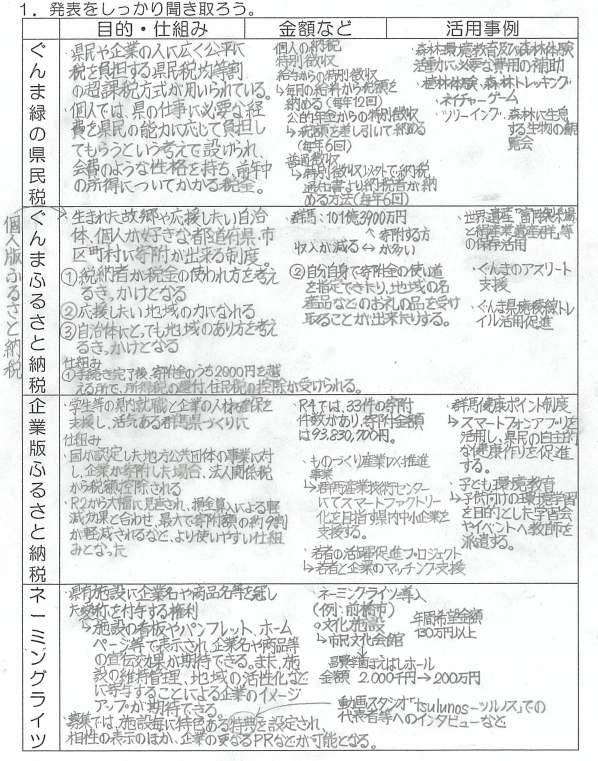 1．発表をしっかり聞き取ろう。
目的・仕組み
金額など
活用事例
ぐんま緑の県民税
・県民や企業の人に広く公平に
税を負担する県民税均等割
の超課税方式が用いられている。
・個人では、県の仕事に必要な経
費を県民の能力に応じて負担し
てもらうという考えで設けられ、
会費のような性格を持ち、前年中
の所得についてかかる税金。
個人の納税
特別徴収
給与からの特別徴収
↳毎月の給料から税額を
納める(毎年12回)
公的年金からの特別徴収
↳税額を差し引いて納める
(毎年6回)
普通徴収
↳特別徴収以外で納税
通知書より納税者が納
める方法(毎年6回)
・森林環境教育及び森林体験
活動に必要な費用の補助
・植林体験・森林トレッキング
・ネイチャーゲーム
・ツリーイング・森林に生息
する生物の観
覧会
個人版ふるさと納税
ぐんまふるさと納税
・生まれた故郷や応援したい自治
体、個人が好きな都道府県・市
区町村に寄附が出来る制度。
①税納者が税金の使われ方を考え
るきっかけとなる
②応援したい地域の力になれる
③自治体にとっても地域のあり方を考え
るきっかけとなる
仕組み
①手続き完了後、寄附金のうち2000円を越
える所で、所得税の還付、住民税の控除が受けられる。
群馬:101億3900万円
↳寄附する方
収入が減る ↔ が多い
②自分自身で寄附金の使い道
を指定できたり、地域の名
産品などのお礼の品を受け
取ることが出来たりする。
・世界遺産「富岡製糸場
と絹産業遺産群」等
の保存活用
・ぐんまのアスリート
支援
・ぐんま県境稜線トレ
イル活用促進
企業版ふるさと納税
・学生等の県内就職と企業の人材確保を
支援し、活気ある群馬県づくりに
仕組み
・国が認定した地方公共団体の事業に対
し、企業が寄附した場合、法人関係税
から税額控除される
・R2から大幅に見直され、損金算入による軽
減効果と合わせ、最大で寄附額の約9割
が軽減されるなど、より使いやすい仕組
みとなった
・R4では、33件の寄附
件数があり、寄附金額
は93,830,700円。
・ものづくり産業DX推進
事業
↳群馬産業技術センター
にてスマートファクトリー
化を目指す県内中小企業を
支援する。
・若者の活躍促進プロジェクト
↳若者と企業のマッチング支援
・群馬健康ポイント制度
↳スマートフォンアプリを
活用し、県民の自主的
な健康作りを促進
する。
・子ども環境教育
↳子供向けの環境学習
を目的とした学習会
やイベントへ教師を
派遣する。
ネーミングライツ
・県有施設に企業名や商品名等を冠し
た愛称を付与する権利
↳施設の看板やパンフレット、ホーム
ページ等で表示され、企業名や商品等
の宣伝効果が期待できる。また、施
設の維持管理、地域の活性化など
に寄与することによる企業のイメージ
アップが期待できる。
・募集では、施設毎に特色ある特典を設定され、
相性の表示のほか、企業の更なるPRなどが可能となる。
ネーミングライツ導入
(例:前橋市)
○文化施設
↳市民文化会館
↓
昌賢学園まえばしホール
金額 2,000千円→200万円
年間希望金額
130万円以上
動画スタジオ「tsulunosーツルノス」での
代表者等へのインタビューなど